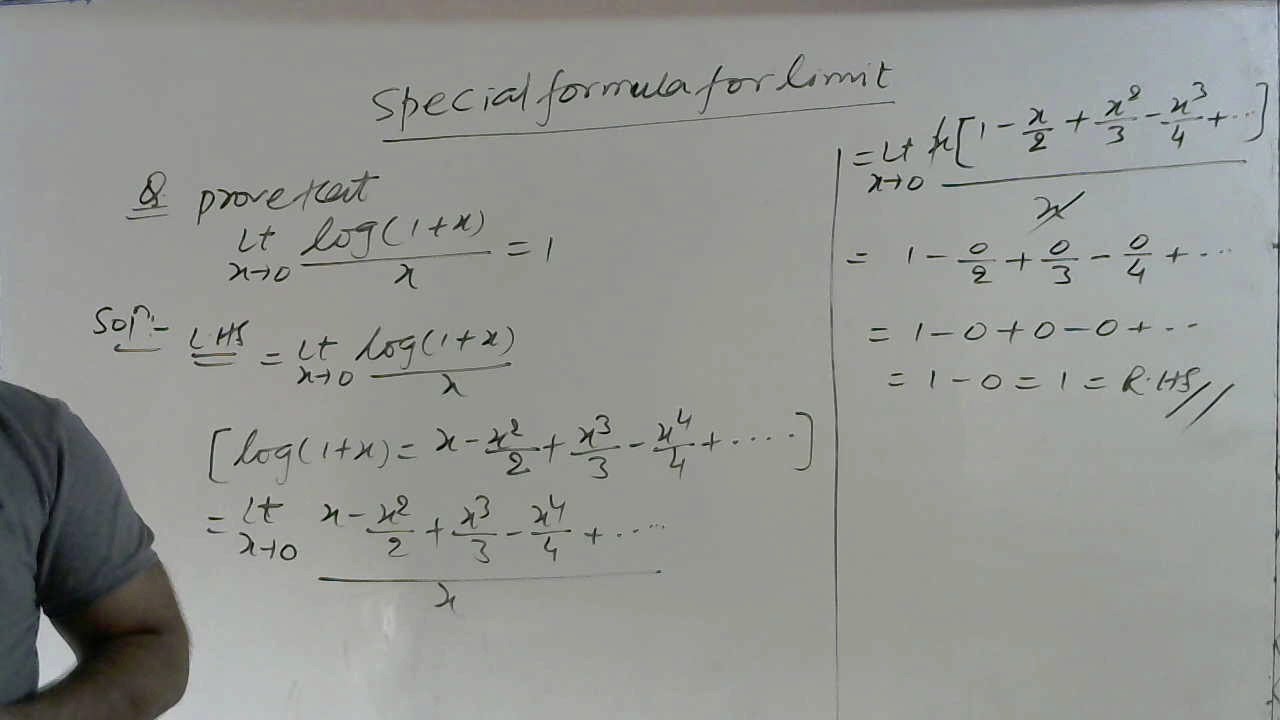 Special formula for limit
Q prove that
Lt x→0 log(1+x)/x = 1
Solⁿ:- LHS = Lt x→0 log(1+x)/x
[log(1+x) = x - x²/2 + x³/3 - x⁴/4 + .....]
= Lt x→0 (x - x²/2 + x³/3 - x⁴/4 + .....)/x
= Lt x→0 x[1 - x/2 + x²/3 - x³/4 + ...]/x
= 1 - 0/2 + 0/3 - 0/4 + ...
= 1 - 0 + 0 - 0 + ...
= 1 - 0 = 1 = R.HS//